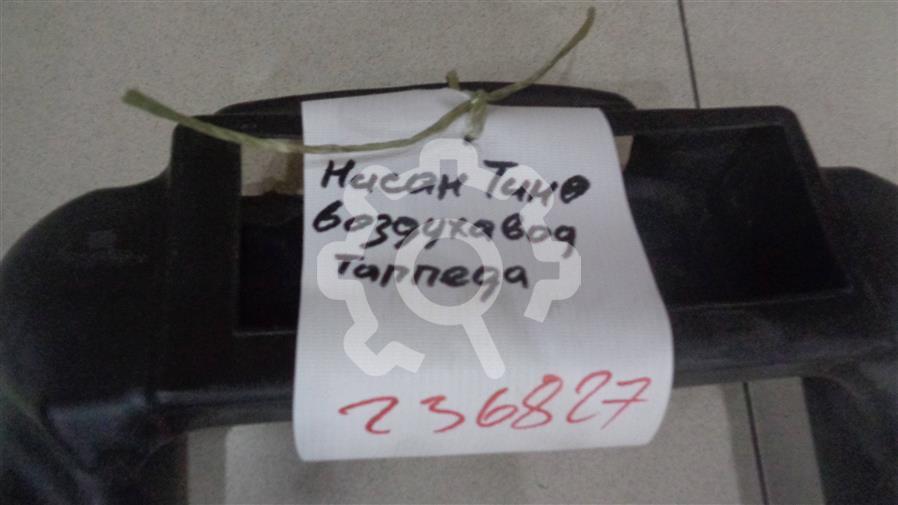 Нисан Тино
воздухавод
Таппеда
236827